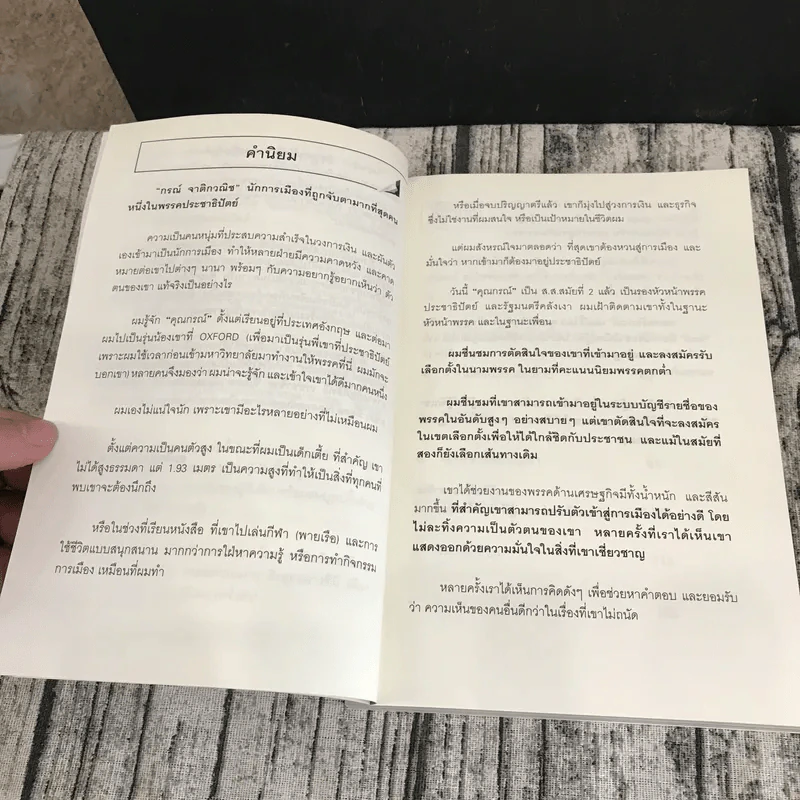 คำนิยม
"กรณ์ จาติกวณิช" นักการเมืองที่ถูกจับตามากที่สุดคน
หนึ่งในพรรคประชาธิปัตย์
ความเป็นคนหนุ่มที่ประสบความสำเร็จในวงการเงิน และผันตัว
เองเข้ามาเป็นนักการเมือง ทำให้หลายฝ่ายมีความคาดหวัง และคาด
หมายต่อเขาไปต่างๆ นานา พร้อมๆ กับความอยากรู้อยากเห็นว่า ตัว
ตนของเขา แท้จริงเป็นอย่างไร
ผมรู้จัก "คุณกรณ์" ตั้งแต่เรียนอยู่ที่ประเทศอังกฤษ และต่อมา
ผมไปเป็นรุ่นน้องเขาที่ OXFORD (เพื่อมาเป็นรุ่นพี่เขาที่ประชาธิปัตย์
เพราะผมใช้เวลาก่อนเข้ามหาวิทยาลัยมาทำงานให้พรรคที่นี่ ผมมักจะ
บอกเขา) หลายคนจึงมองว่า ผมน่าจะรู้จัก และเข้าใจเขาได้ดีมากคนหนึ่ง
ผมเองไม่แน่ใจนัก เพราะเขามีอะไรหลายอย่างที่ไม่เหมือนผม
ตั้งแต่ความเป็นคนตัวสูง ในขณะที่ผมเป็นเด็กเตี้ย ที่สำคัญ เขา
ไม่ได้สูงธรรมดา แต่ 1.93 เมตร เป็นความสูงที่ทำให้เป็นสิ่งที่ทุกคนที่
พบเขาจะต้องนึกถึง
หรือในช่วงที่เรียนหนังสือ ที่เขาไปเล่นกีฬา (พายเรือ) และการ
ใช้ชีวิตแบบสนุกสนาน มากกว่าการใฝ่หาความรู้ หรือการทำกิจกรรม
การเมือง เหมือนที่ผมทำ
หรือเมื่อจบปริญญาตรีแล้ว เขาก็มุ่งไปสู่วงการเงิน และธุรกิจ
ซึ่งไม่ใช่งานที่ผมสนใจ หรือเป็นเป้าหมายในชีวิตผม
แต่ผมสังหรณ์ใจมาตลอดว่า ที่สุดเขาต้องหวนสู่การเมือง และ
มั่นใจว่า หากเข้ามาก็ต้องมาอยู่ประชาธิปัตย์
วันนี้ "คุณกรณ์" เป็น ส.ส.สมัยที่ 2 แล้ว เป็นรองหัวหน้าพรรค
ประชาธิปัตย์ และรัฐมนตรีคลังเงา ผมเฝ้าติดตามเขาทั้งในฐานะ
หัวหน้าพรรค และในฐานะเพื่อน
ผมชื่นชมการตัดสินใจของเขาที่เข้ามาอยู่ และลงสมัครรับ
เลือกตั้งในนามพรรค ในยามที่คะแนนนิยมพรรคตกต่ำ
ผมชื่นชมที่เขาสามารถเข้ามาอยู่ในระบบบัญชีรายชื่อของ
พรรคในอันดับสูงๆ อย่างสบายๆ แต่เขาตัดสินใจที่จะลงสมัคร
ในเขตเลือกตั้งเพื่อให้ได้ใกล้ชิดกับประชาชน และแม้ในสมัยที่
สองก็ยังเลือกเส้นทางเดิม
เขาได้ช่วยงานของพรรคด้านเศรษฐกิจมีทั้งน้ำหนัก และสีสัน
มากขึ้น ที่สำคัญเขาสามารถปรับตัวเข้าสู่การเมืองได้อย่างดี โดย
ไม่ละทิ้งความเป็นตัวตนของเขา หลายครั้งที่เราได้เห็นเขา
แสดงออกด้วยความมั่นใจในสิ่งที่เขาเชี่ยวชาญ
หลายครั้งเราได้เห็นการคิดดังๆ เพื่อช่วยหาคำตอบ และยอมรับ
ว่า ความเห็นของคนอื่นดีกว่าในเรื่องที่เขาไม่ถนัด